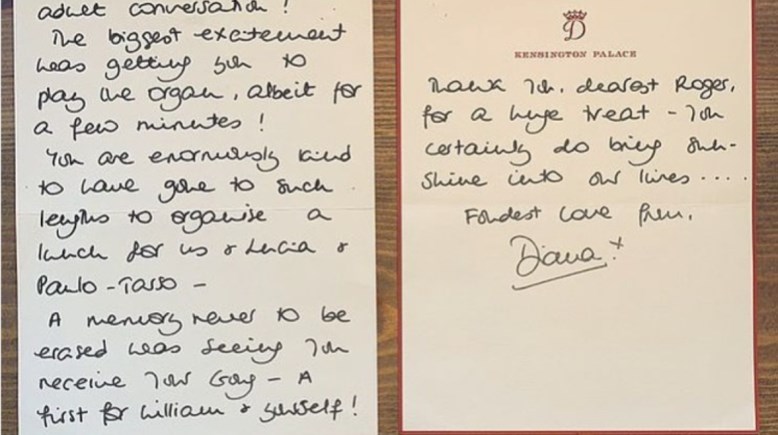 adult conversation!
The biggest excitement
was getting you to
play the organ, albeit for
a few minutes!
You are enormously kind
to have gone to such
lengths to organise a
lunch for us & Lucia &
Paulo-Tarso -
A memory never to be
erased was seeing you
receive your Gong - A
first for William &
D
KENSINGTON PALACE
Thank you, dearest Roger,
for a huge treat - you
certainly do bring sun-
shine into our lives ....
Fondest love from,
Diana x